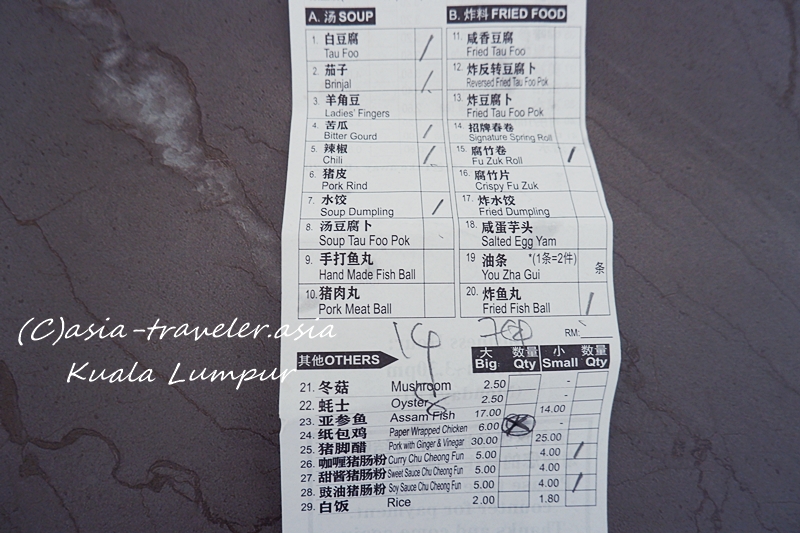 A. 汤 SOUP
1. 白豆腐
Tau Foo
2. 茄子
Brinjal
3. 羊角豆
Ladies' Fingers
4. 苦瓜
Bitter Gourd
5. 辣椒
Chili
6. 猪皮
Pork Rind
7. 水饺
Soup Dumpling
8. 汤豆腐卜
Soup Tau Foo Pok
9. 手打鱼丸
Hand Made Fish Ball
10. 猪肉丸
Pork Meat Ball
B. 炸料 FRIED FOOD
11. 咸香豆腐
Fried Tau Foo
12. 炸反转豆腐卜
Reversed Fried Tau Foo Pok
13. 炸豆腐卜
Fried Tau Foo Pok
14. 招牌春卷
Signature Spring Roll
15. 腐竹卷
Fu Zuk Roll
16. 腐竹片
Crispy Fu Zuk
17. 炸水饺
Fried Dumpling
18. 咸蛋芋头
Salted Egg Yam
19 油条 *(1条=2件) 条
You Zha Gui
20. 炸鱼丸
Fried Fish Ball
RM:
(C)asia-traveler.asia
Kuala Lumpur
其他OTHERS 大 Big 数量 Qty 小 Small 数量 Qty
21. 冬菇 Mushroom 2.50 -
22. 蚝士 Oyster 2.50 -
23. 亚参鱼 Assam Fish 17.00 14.00
24. 纸包鸡 Paper Wrapped Chicken 6.00 -
25. 猪脚醋 Pork with Ginger & Vinegar 30.00 25.00
26. 咖喱猪肠粉 Curry Chu Cheong Fun 5.00 4.00
27. 甜酱猪肠粉 Sweet Sauce Chu Cheong Fun 5.00 4.00
28. 豉油猪肠粉 Soy Sauce Chu Cheong Fun 5.00 4.00
29. 白饭 Rice 2.00 1.80